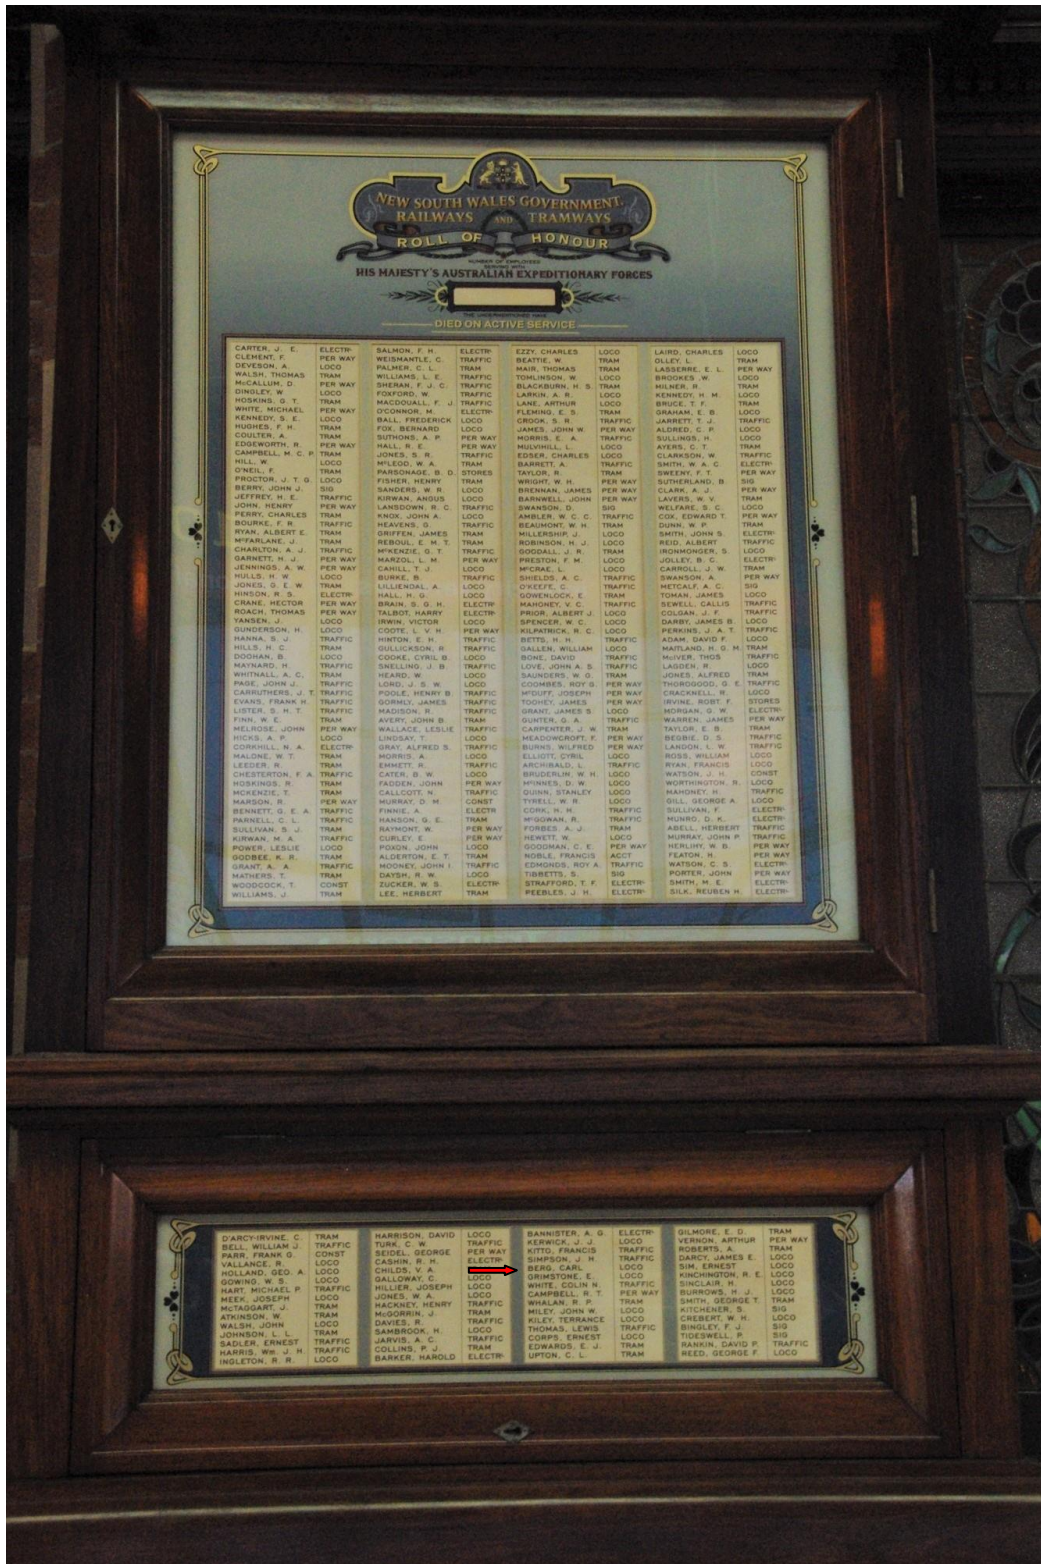 NEW SOUTH WALES GOVERNMENT.
RAILWAYS AND TRAMWAYS
ROLL OF HONOUR
NUMBER OF EMPLOYEES
SERVING WITH
HIS MAJESTY'S AUSTRALIAN EXPEDITIONARY FORCES
THE UNDERMENTIONED HAVE
DIED ON ACTIVE SERVICE
CARTER, J. E. ELECTRL
CLEMENT, F. PER WAY
DEVESON, A. LOCO
WALSH, THOMAS TRAM
McCALLUM, D. PER WAY
DINGLEY, W. LOCO
HOSKINS, G. T. TRAM
WHITE, MICHAEL PER WAY
KENNEDY, S. E. LOCO
HUGHES, F. H. TRAM
COULTER, A. TRAM
EDGEWORTH, R. PER WAY
CAMPBELL, M. C. P. TRAM
HILL, W. LOCO
O'NEIL, F. TRAM
PROCTOR, J. T. G. LOCO
BERRY, JOHN J. SIG
JEFFREY, H. E. TRAFFIC
JOHN, HENRY PER WAY
PERRY, CHARLES TRAM
BOURKE, F. R. TRAFFIC
RYAN, ALBERT E. TRAM
McFARLANE, J. TRAM
CHARLTON, A. J. TRAFFIC
GARNETT, H. J. PER WAY
JENNINGS, A. W. PER WAY
HULLS, H. W. LOCO
JONES, G. E. W. TRAM
HINSON, R. S. ELECTRL
CRANE, HECTOR PER WAY
ROACH, THOMAS PER WAY
YANSEN, J. LOCO
GUNDERSON, H. LOCO
HANNA, S. J. TRAFFIC
HILLS, H. C. TRAM
DOOHAN, B. LOCO
MAYNARD, H. TRAFFIC
WHITNALL, A. C. TRAM
PAGE, JOHN J. TRAFFIC
CARRUTHERS, J. T. TRAFFIC
EVANS, FRANK H. TRAFFIC
LISTER, S. H. T. TRAFFIC
FINN, W. E. TRAM
MELROSE, JOHN PER WAY
HICKS, A. P. LOCO
CORKHILL, N. A. ELECTRL
MALONE, W. T. TRAM
LEEDER, R. TRAM
CHESTERTON, F. A. TRAFFIC
HOSKINGS, R. TRAM
MCKENZIE, T. TRAM
MARSON, R. PER WAY
BENNETT, G. E. A. TRAFFIC
PARNELL, C. L. TRAFFIC
SULLIVAN, S. J. TRAM
KIRWAN, M. A. TRAFFIC
POWER, LESLIE LOCO
GODBEE, K. R. TRAM
GRANT, A. A. TRAFFIC
MATHERS, T. TRAM
WOODCOCK, T. CONST
WILLIAMS, J. TRAM
SALMON, F. H. ELECTRL
WEISMANTLE, C. TRAFFIC
PALMER, C. L. TRAM
WILLIAMS, L. E. TRAFFIC
SHERAN, F. J. C. TRAFFIC
FOXFORD, W. TRAFFIC
MACDOUALL, F. J. TRAFFIC
O'CONNOR, M. ELECTRL
BALL, FREDERICK LOCO
FOX, BERNARD LOCO
SUTHONS, A. P. PER WAY
HALL, R. E. PER WAY
JONES, S. R. TRAFFIC
McLEOD, W. A. TRAM
PARSONAGE, B. D. STORES
FISHER, HENRY TRAM
SANDERS, W. R. LOCO
KIRWAN, ANGUS LOCO
LANSDOWN, R. C. TRAFFIC
KNOX, JOHN A. LOCO
HEAVENS, G. TRAFFIC
GRIFFEN, JAMES TRAM
REBOUL, E. M. T. TRAM
McKENZIE, G. T. TRAFFIC
MARZOL, L. M. PER WAY
CAHILL, T. J. LOCO
BURKE, B. TRAFFIC
LILLIENDAL, A. LOCO
HALL, H. G. LOCO
BRAIN, S. G. H. ELECTRL
TALBOT, HARRY ELECTRL
IRWIN, VICTOR LOCO
COOTE, L. V. H. PER WAY
HINTON, E. H. TRAFFIC
GULLICKSON, R. TRAFFIC
COOKE, CYRIL B. LOCO
SNELLING, J. B. TRAFFIC
HEARD, W. LOCO
LORD, J. S. W. LOCO
POOLE, HENRY B. TRAFFIC
GORMLY, JAMES TRAFFIC
MADISON, R. TRAFFIC
AVERY, JOHN B. TRAM
WALLACE, LESLIE TRAFFIC
LINDSAY, T. LOCO
GRAY, ALFRED S. TRAFFIC
MORRIS, A. LOCO
EMMETT, R. TRAFFIC
CATER, B. W. LOCO
FADDEN, JOHN PER WAY
CALLCOTT, N. TRAFFIC
MURRAY, D. M. CONST
FINNIE, A. ELECTR
HANSON, G. E. TRAM
RAYMONT, W. PER WAY
CURLEY, E. PER WAY
POXON, JOHN LOCO
ALDERTON, E. T. TRAM
MOONEY, JOHN I. TRAFFIC
DAYSH, R. W. LOCO
ZUCKER, W. S. ELECTRL
LEE, HERBERT TRAM
EZZY, CHARLES LOCO
BEATTIE, W. TRAM
MAIR, THOMAS TRAM
TOMLINSON, W. LOCO
BLACKBURN, H. S. TRAM
LARKIN, A. R. LOCO
LANE, ARTHUR LOCO
FLEMING, E. S. TRAM
CROOK, S. R. TRAFFIC
JAMES, JOHN W. PER WAY
MORRIS, E. A. TRAFFIC
MULVIHILL, L. LOCO
EDSER, CHARLES LOCO
BARRETT, A. TRAFFIC
TAYLOR, R. TRAM
WRIGHT, W. H. PER WAY
BRENNAN, JAMES PER WAY
BARNWELL, JOHN PER WAY
SWANSON, D. SIG
AMBLER, W. C. C. TRAFFIC
BEAUMONT, W. H. TRAM
MILLERSHIP, J. LOCO
ROBINSON, H. J. LOCO
GOODALL, J. R. TRAM
PRESTON, F. M. LOCO
McCRAE, L. LOCO
SHIELDS, A. C. TRAFFIC
O'KEEFE, C. TRAFFIC
GOWENLOCK, E. TRAM
MAHONEY, V. C. TRAFFIC
PRIOR, ALBERT J. LOCO
SPENCER, W. C. LOCO
KILPATRICK, R. C. LOCO
BETTS, H. H. TRAFFIC
GALLEN, WILLIAM LOCO
BONE, DAVID TRAFFIC
LOVE, JOHN A. S. TRAFFIC
SAUNDERS, W. G. TRAM
COOMBES, ROY G. PER WAY
McDUFF, JOSEPH PER WAY
TOOHEY, JAMES PER WAY
GRANT, JAMES S. LOCO
GUNTER, G. A. TRAFFIC
CARPENTER, J. W. TRAM
MEADOWCROFT, F. PER WAY
BURNS, WILFRED PER WAY
ELLIOTT, CYRIL LOCO
ARCHIBALD, L. TRAFFIC
BRUDERLIN, W. H. LOCO
McINNES, D. W. LOCO
QUINN, STANLEY LOCO
TYRELL, W. R. LOCO
CORK, H. H. TRAFFIC
McGOWAN, R. TRAFFIC
FORBES, A. J. TRAM
HEWETT, W. LOCO
GOODMAN, C. E. PER WAY
NOBLE, FRANCIS ACCT
EDMONDS, ROY A. TRAFFIC
TIBBETTS, S. SIG
STRAFFORD, T. F. ELECTRL
PEEBLES, J. H. ELECTRL
LAIRD, CHARLES LOCO
OLLEY, L. TRAM
LASSERRE, E. L. PER WAY
BROOKES, W. LOCO
MILNER, R. TRAM
KENNEDY, H. M. LOCO
BRUCE, T. F. TRAM
GRAHAM, E. B. LOCO
JARRETT, T. J. TRAFFIC
ALDRED, C. P. LOCO
SULLINGS, H. LOCO
AYERS, C. T. TRAM
CLARKSON, W. TRAFFIC
SMITH, W. A. C. ELECTRL
SWEENY, F. T. PER WAY
SUTHERLAND, B. SIG
CLARK, A. J. PER WAY
LAVERS, W. V. TRAM
WELFARE, S. C. LOCO
COX, EDWARD T. PER WAY
DUNN, W. P. TRAM
SMITH, JOHN S. ELECTRL
REID, ALBERT TRAFFIC
IRONMONGER, S. LOCO
JOLLEY, B. C. ELECTRL
CARROLL, J. W. TRAM
SWANSON, A. PER WAY
METCALF, A. C. SIG
TOMAN, JAMES LOCO
SEWELL, CALLIS TRAFFIC
COLGAN, J. F. TRAFFIC
DARBY, JAMES B. LOCO
PERKINS, J. A. T. TRAFFIC
ADAM, DAVID F. LOCO
MAITLAND, H. G. M. TRAM
McIVER, THOS TRAFFIC
LAGDEN, R. LOCO
JONES, ALFRED TRAM
THOROGOOD, G. E. TRAFFIC
CRACKNELL, R. LOCO
IRVINE, ROBT. F. STORES
MORGAN, G. W. ELECTRL
WARREN, JAMES PER WAY
TAYLOR, E. B. TRAM
BEGBIE, D. S. TRAFFIC
LANDON, L. W. TRAFFIC
ROSS, WILLIAM LOCO
RYAN, FRANCIS LOCO
WATSON, J. H. CONST
WORTHINGTON, R. LOCO
MAHONEY, H. TRAFFIC
GILL, GEORGE A. LOCO
SULLIVAN, F. ELECTRL
MUNRO, D. K. ELECTRL
ABELL, HERBERT TRAFFIC
MURRAY, JOHN P. TRAFFIC
HERLIHY, W. B. PER WAY
FEATON, H. PER WAY
WATSON, C. S. ELECTRL
PORTER, JOHN PER WAY
SMITH, M. E. ELECTRL
SILK, REUBEN H. ELECTRL
D'ARCY-IRVINE, C. TRAM
BELL, WILLIAM J. TRAFFIC
PARR, FRANK G. CONST
VALLANCE, R. LOCO
HOLLAND, GEO. A. LOCO
GOWING, W. S. LOCO
HART, MICHAEL P. TRAFFIC
MEEK, JOSEPH LOCO
McTAGGART, J. TRAM
ATKINSON, W. TRAM
WALSH, JOHN LOCO
JOHNSON, L. L. TRAM
SADLER, ERNEST TRAFFIC
HARRIS, Wm. J. H. TRAFFIC
INGLETON, R. R. LOCO
HARRISON, DAVID LOCO
TURK, C. W. TRAFFIC
SEIDEL, GEORGE PER WAY
CASHIN, R. H. ELECTRL
CHILDS, V. A.
GALLOWAY, C. LOCO
HILLIER, JOSEPH LOCO
JONES, W. A. LOCO
HACKNEY, HENRY TRAFFIC
McGORRIN, J. TRAM
DAVIES, R. TRAFFIC
SAMBROOK, H. LOCO
JARVIS, A. C. TRAFFIC
COLLINS, P. J. TRAM
BARKER, HAROLD ELECTRL
BANNISTER, A. G. ELECTRL
KERWICK, J. J. LOCO
KITTO, FRANCIS TRAFFIC
SIMPSON, J. H. TRAFFIC
BERG, CARL LOCO
GRIMSTONE, E. LOCO
WHITE, COLIN N. TRAFFIC
CAMPBELL, R. T. PER WAY
WHALAN, R. P. TRAM
MILEY, JOHN W. LOCO
KILEY, TERRANCE LOCO
THOMAS, LEWIS TRAFFIC
CORPS, ERNEST LOCO
EDWARDS, E. J. TRAM
UPTON, C. L. TRAM
GILMORE, E. D. TRAM
VERNON, ARTHUR PER WAY
ROBERTS, A. TRAM
DARCY, JAMES E. LOCO
SIM, ERNEST LOCO
KINCHINGTON, R. E. LOCO
SINCLAIR, H. LOCO
BURROWS, H. J. LOCO
SMITH, GEORGE T. TRAM
KITCHENER, S. SIG
CREBERT, W. H. LOCO
BINGLEY, F. J. SIG
TIDESWELL, P. SIG
RANKIN, DAVID P. TRAFFIC
REED, GEORGE F. LOCO